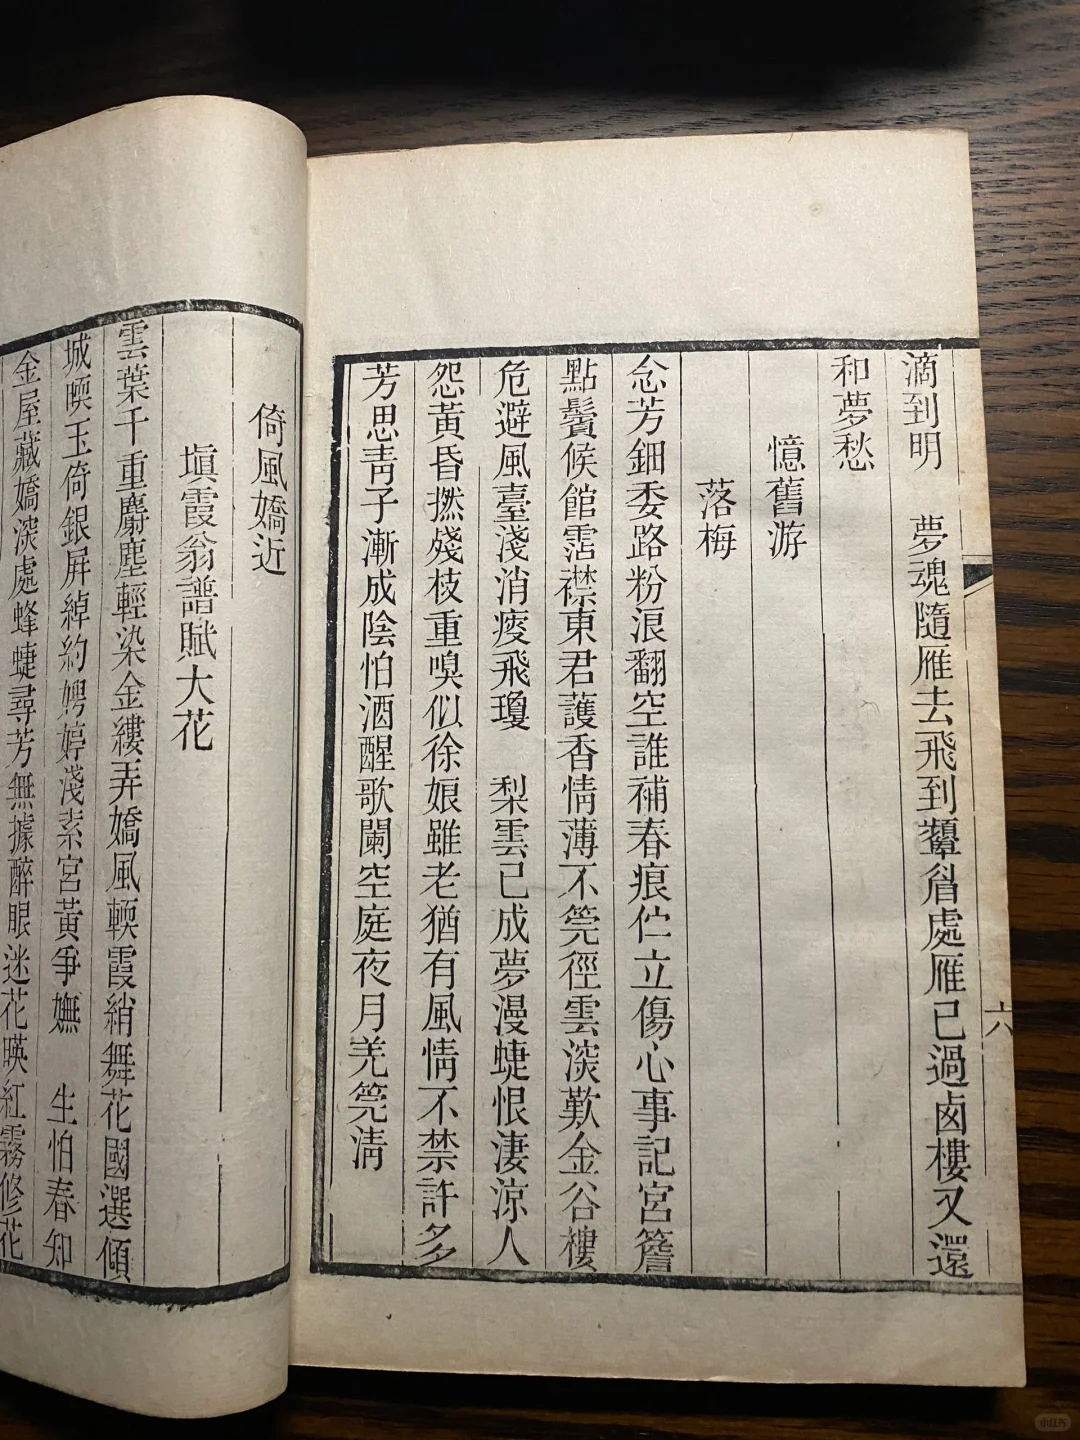 滴到明　夢魂隨雁去飛到顰眉處雁已過西樓又還
和夢愁
憶舊游
落梅
念芳鈿委路粉浪翻空誰補春痕伫立傷心事記宮簷
點鬢候館霑襟東君護香情薄不筦徑雲淡歎金谷樓
危避風臺淺消瘦飛瓊　梨雲已成夢漫蜨恨淒涼人
怨黃昏撚殘枝重嗅似徐娘雖老猶有風情不禁許多
芳思青子漸成陰怕酒醒歌闌空庭夜月羌筦清
六
倚風嬌近
塡霞翁譜賦大花
雲葉千重麝塵輕染金縷弄嬌風輭霞綃舞花國選傾
城暎玉倚銀屏綽約娉婷淺素宮黃爭嫵　生怕春知
金屋藏嬌深處蜂蜨尋芳無據醉眼迷花暎紅霧修花
小红书